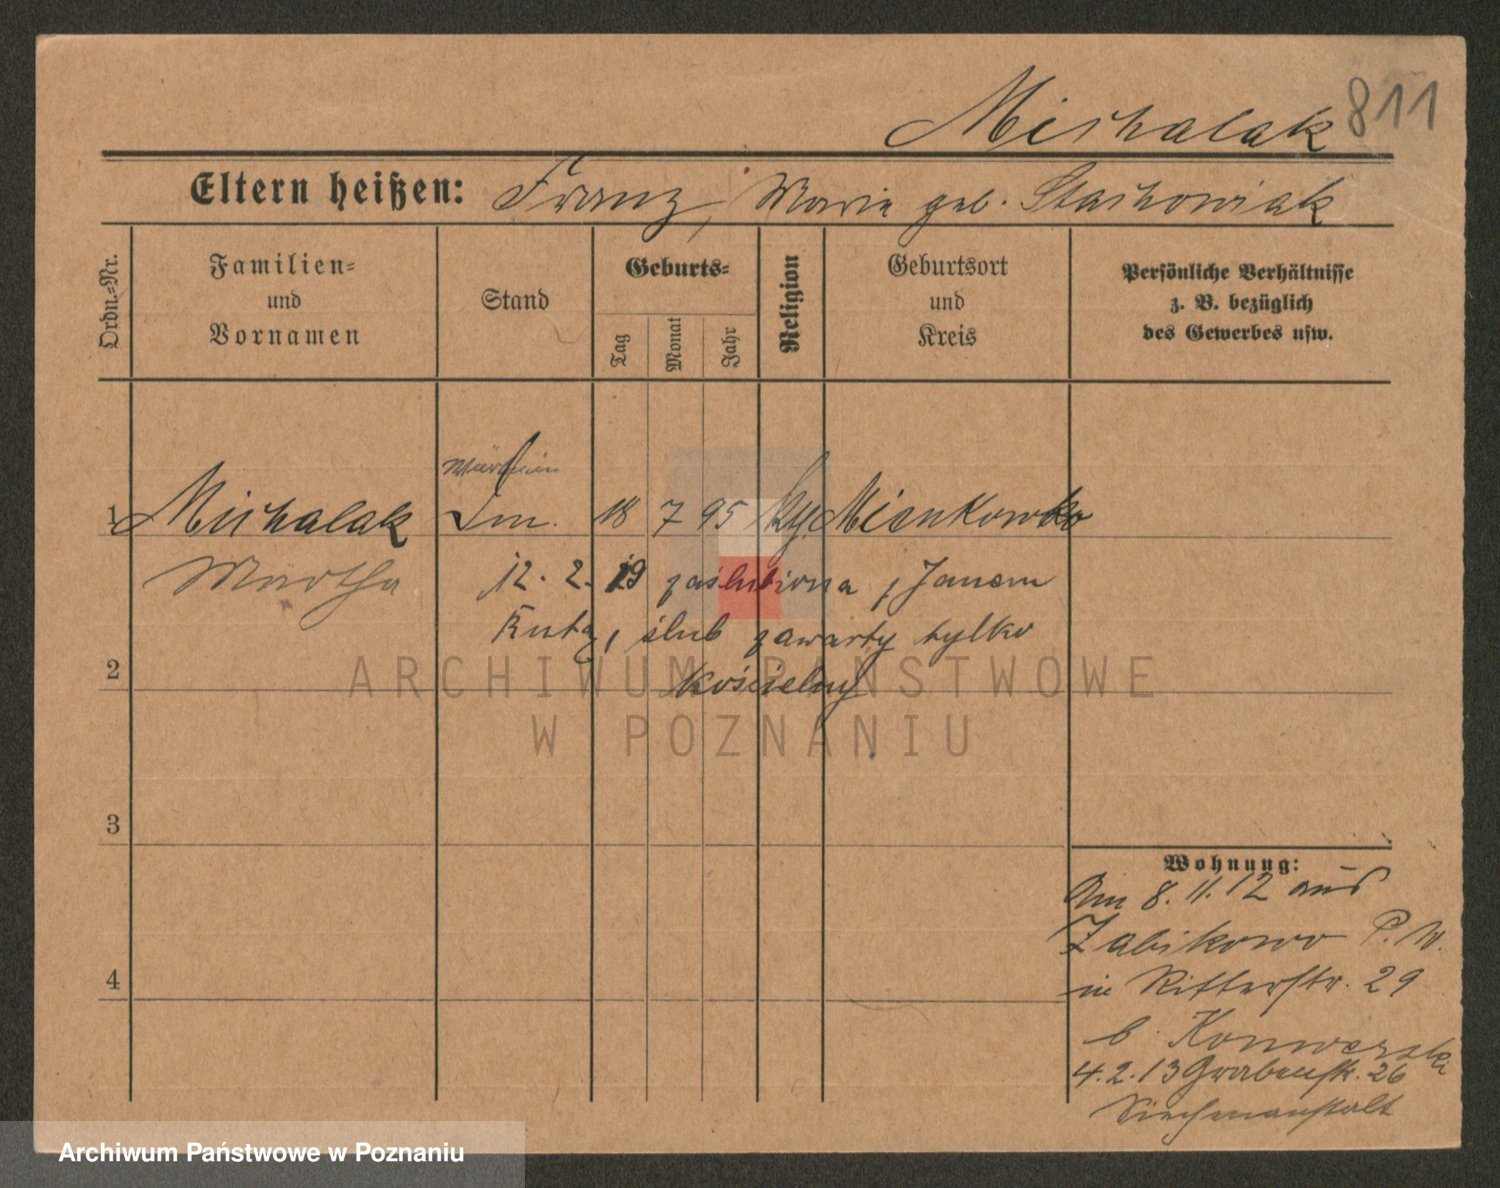 Michalak 811
Eltern heißen: Franz, Marie geb. Stachowiak
Ordn.-Nr.
Familien-
und
Vornamen
Stand
Geburts-
Tag
Monat
Jahr
Religion
Geburtsort
und
Kreis
Persönliche Verhältnisse
z. B. bezüglich
des Gewerbes usw.
1 Michalak 18 7 95 Mienkowko
Martha 12. 2. 19 zaślubiona z Janem
Kutz, ślub zawarty tylko
2 kościelny
3
4
Wohnung:
Am 8. 11. 12 aus
Zabikowo P. W.
in Ritterstr. 29
b. Konwerski
4. 2. 13 Grabenstr. 26
ARCHIWUM PAŃSTWOWE
W POZNANIU
Archiwum Państwowe w Poznaniu